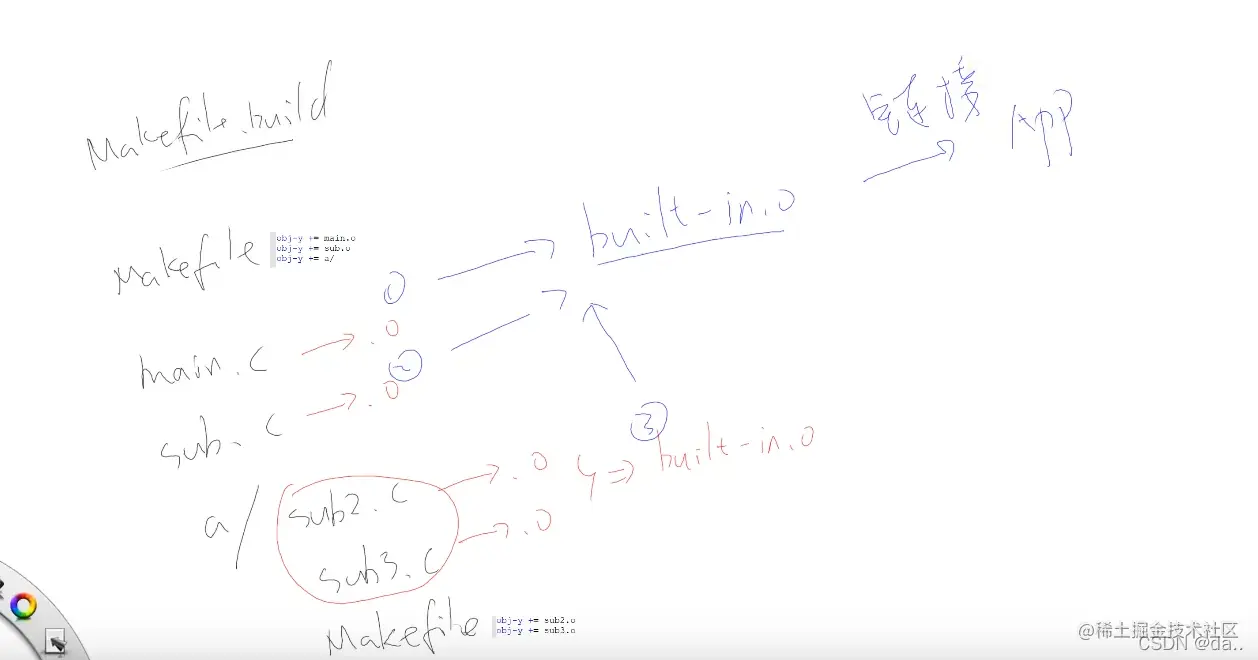 Makefile.build
链接
APP
built-in.o
Makefile
obj-y += main.o
obj-y += sub.o
obj-y += a/
①
main.c
.o
②
sub.c
.o
③
a/
sub2.c
.o
=> built-in.o
sub3.c
.o
Makefile
obj-y += sub2.o
obj-y += sub3.o
@稀土掘金技术社区
CSDN @da..